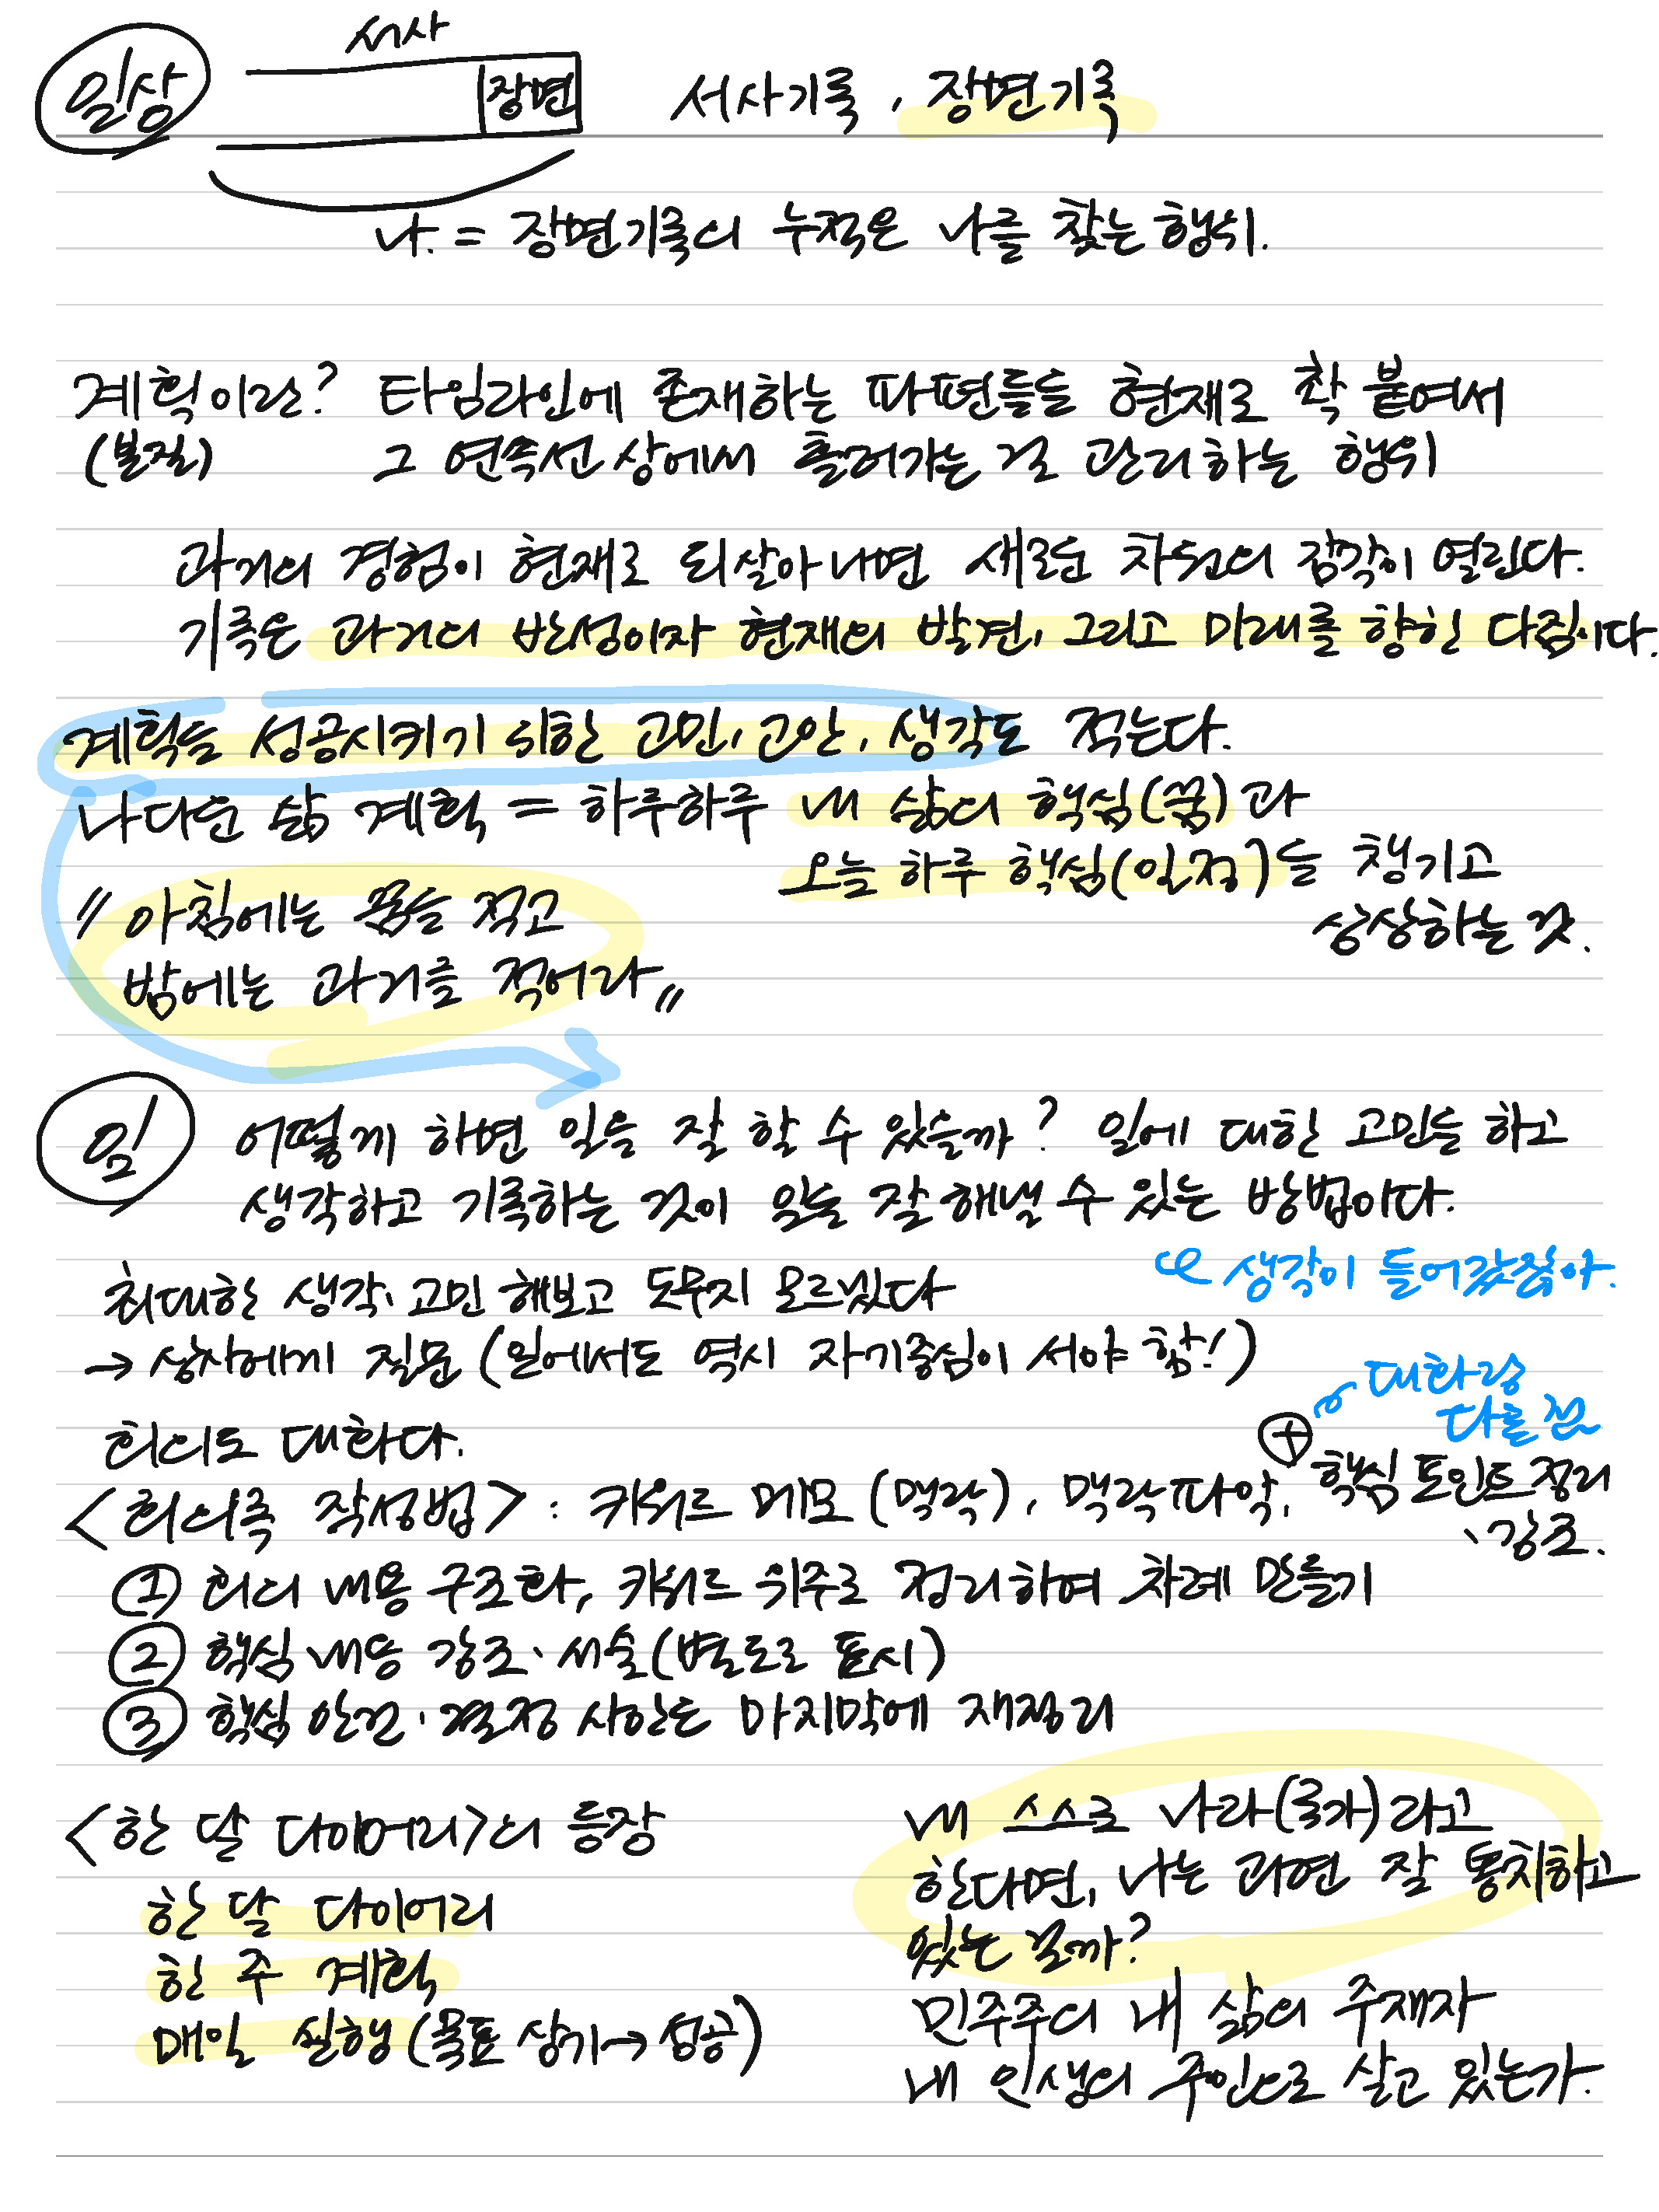 일상
서사
장면
서사기록, 장면기록
나. = 장면기록의 누적은 나를 찾는 행위.
계획이란? 타임라인에 존재하는 파편들을 현재로 착 붙여서
(본질) 그 연속선 상에서 흘러가는 걸 관리하는 행위
과거의 경험이 현재로 되살아나면 새로운 차원의 감각이 열린다.
기록은 과거의 반성이자 현재의 발견, 그리고 미래를 향한 다짐이다.
계획을 성공시키기 위한 고민, 고안, 생각도 적는다.
나다운 삶 계획 = 하루하루 내 삶의 핵심(꿈)과
오늘 하루 핵심(일정)을 챙기고
상상하는 것.
"아침에는 꿈을 적고
밤에는 과거를 적어라"
일
어떻게 하면 일을 잘 할 수 있을까? 일에 대한 고민을 하고
생각하고 기록하는 것이 일을 잘 해낼 수 있는 방법이다.
생각이 들어갔잖아.
최대한 생각·고민 해보고 도무지 모르겠다
→ 상사에게 질문 (일에서도 역시 자기중심이 서야 함!)
대화랑
다른 점
회의도 대화다.
<회의록 작성법> : 키워드 메모 (맥락), 맥락파악, + 핵심 포인트 정리
·강조.
① 회의 내용 구조화, 키워드 위주로 정리하여 차례 만들기
② 핵심 내용 강조·서술(별도로 표시)
③ 핵심 안건·결정 사안은 마지막에 재정리
<한 달 다이어리>의 등장
한 달 다이어리
한 주 계획
매일 실행(목표 상기→성공)
내 스스로 나라(국가)라고
한다면, 나는 과연 잘 통치하고
있는 걸까?
민주주의 내 삶의 주재자
내 인생의 주인으로 살고 있는가.